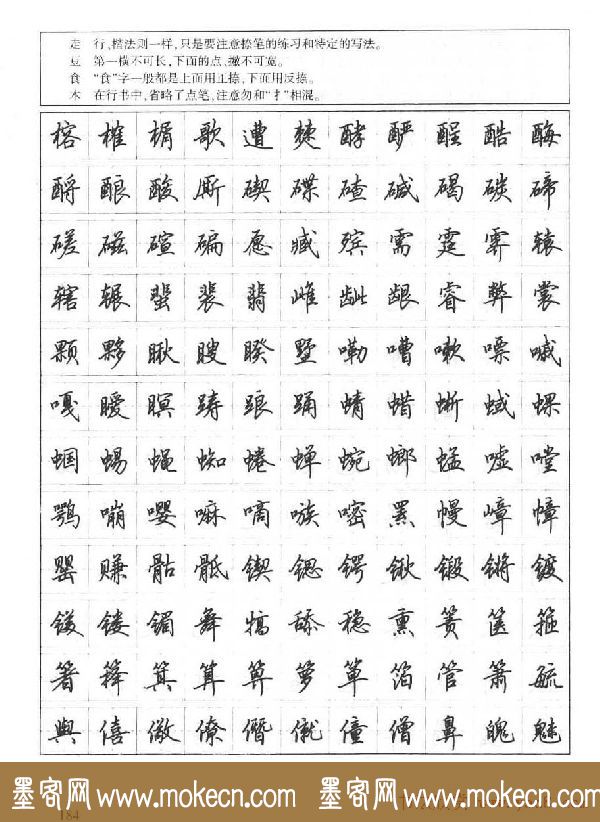 走 行,楷法则一样,只是要注意捺笔的练习和特定的写法。
豆 第一横不可长,下面的点、撇不可宽。
食 “食”字一般都是上面用正捺,下面用反捺。
木 在行书中,省略了点笔,注意勿和“扌”相混。
榕 榷 榍 歌 遭 僰 酵 酽 酲 酷 酶
酹 酿 酸 厮 碶 碟 碴 碱 碣 碳 碲
磋 磁 碹 碥 愿 臧 殡 需 霆 霁 辕
辖 辗 蜚 裴 翡 雌 龇 龈 睿 弊 裳
颗 夥 瞅 瞍 睽 墅 嘞 嘈 嗽 嘌 嘁
嘎 暧 暝 踌 踉 踊 蜻 蜡 蜥 蜮 蜾
蝈 蜴 蝇 蜘 蜷 蝉 蜿 螂 蜢 嘘 嘡
鹗 嘣 嘤 嘛 嘀 嗾 嘧 罴 幔 嶂 幛
罂 赚 骷 骶 锲 锶 锷 锹 锻 锵 镀
镁 镂 镅 舞 犒 舔 稳 熏 箦 箧 箍
箸 箨 箕 算 箅 箩 箪 箔 管 箫 毓
舆 僖 儆 僚 僭 僦 僮 僧 鼻 魄 魅
墨客网 www.mokecn.com 墨客网 www.mokecn.com
184